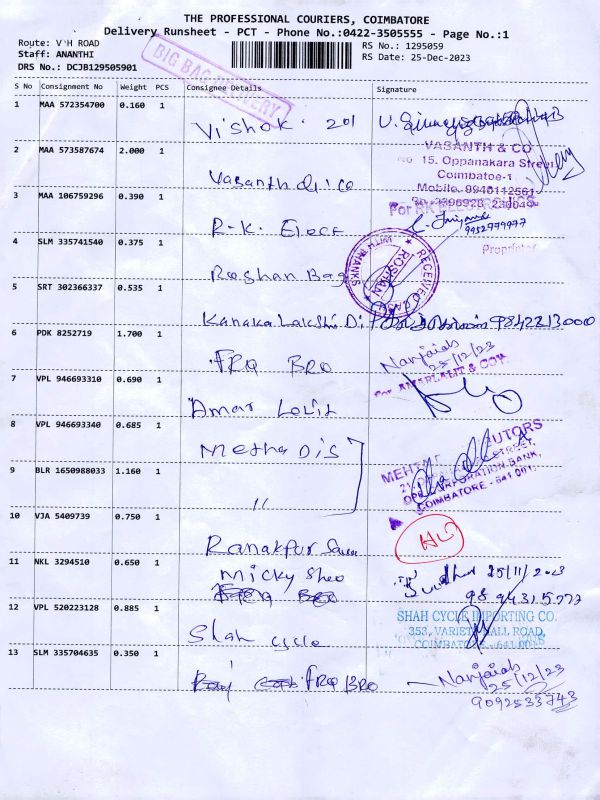 THE PROFESSIONAL COURIERS, COIMBATORE
Delivery Runsheet - PCT - Phone No.:0422-3505555 - Page No.:1
Route: V H ROAD
Staff: ANANTHI
DRS No.: DCJB129505901
RS No.: 1295059
RS Date: 25-Dec-2023
BIG BAG DELIVERY
S No Consignment No Weight PCS Consignee Details Signature
1 MAA 572354700 0.160 1
Vishok. 201
2 MAA 573587674 2.000 1
VASANTH & CO
No 15. Oppanakara Street
Coimbatoe-1
Mobile. 9946112561
Vasanth & Co
3 MAA 106759296 0.390 1
9952779977
R.K. Elecc
Proprietor
4 SLM 335741540 0.375 1
RECEIVED
WITH THANKS
ROSHAN
Roshan Bag
5 SRT 302366337 0.535 1
Kanaka Lakshmi Di 9842213000
6 PDK 8252719 1.700 1
Nanjaiah
25/12/23
FRQ BRO
7 VPL 946693310 0.690 1
For AMARLALIT & CO
Amar Lolit
8 VPL 946693340 0.685 1
Metha Dis
9 BLR 1650988033 1.160 1
COIMBATORE - 641 001
"
10 VJA 5409739 0.750 1
Ranakpur
11 NKL 3294510 0.650 1
Micky Shoo
25/11/2023
9894315777
12 VPL 520223128 0.885 1
SHAH CYCLE IMPORTING CO.
353, VARIETY HALL ROAD,
Shah cycle
13 SLM 335704635 0.350 1
FRQ BRO
Nanjaiah
25/12/23
9092533743